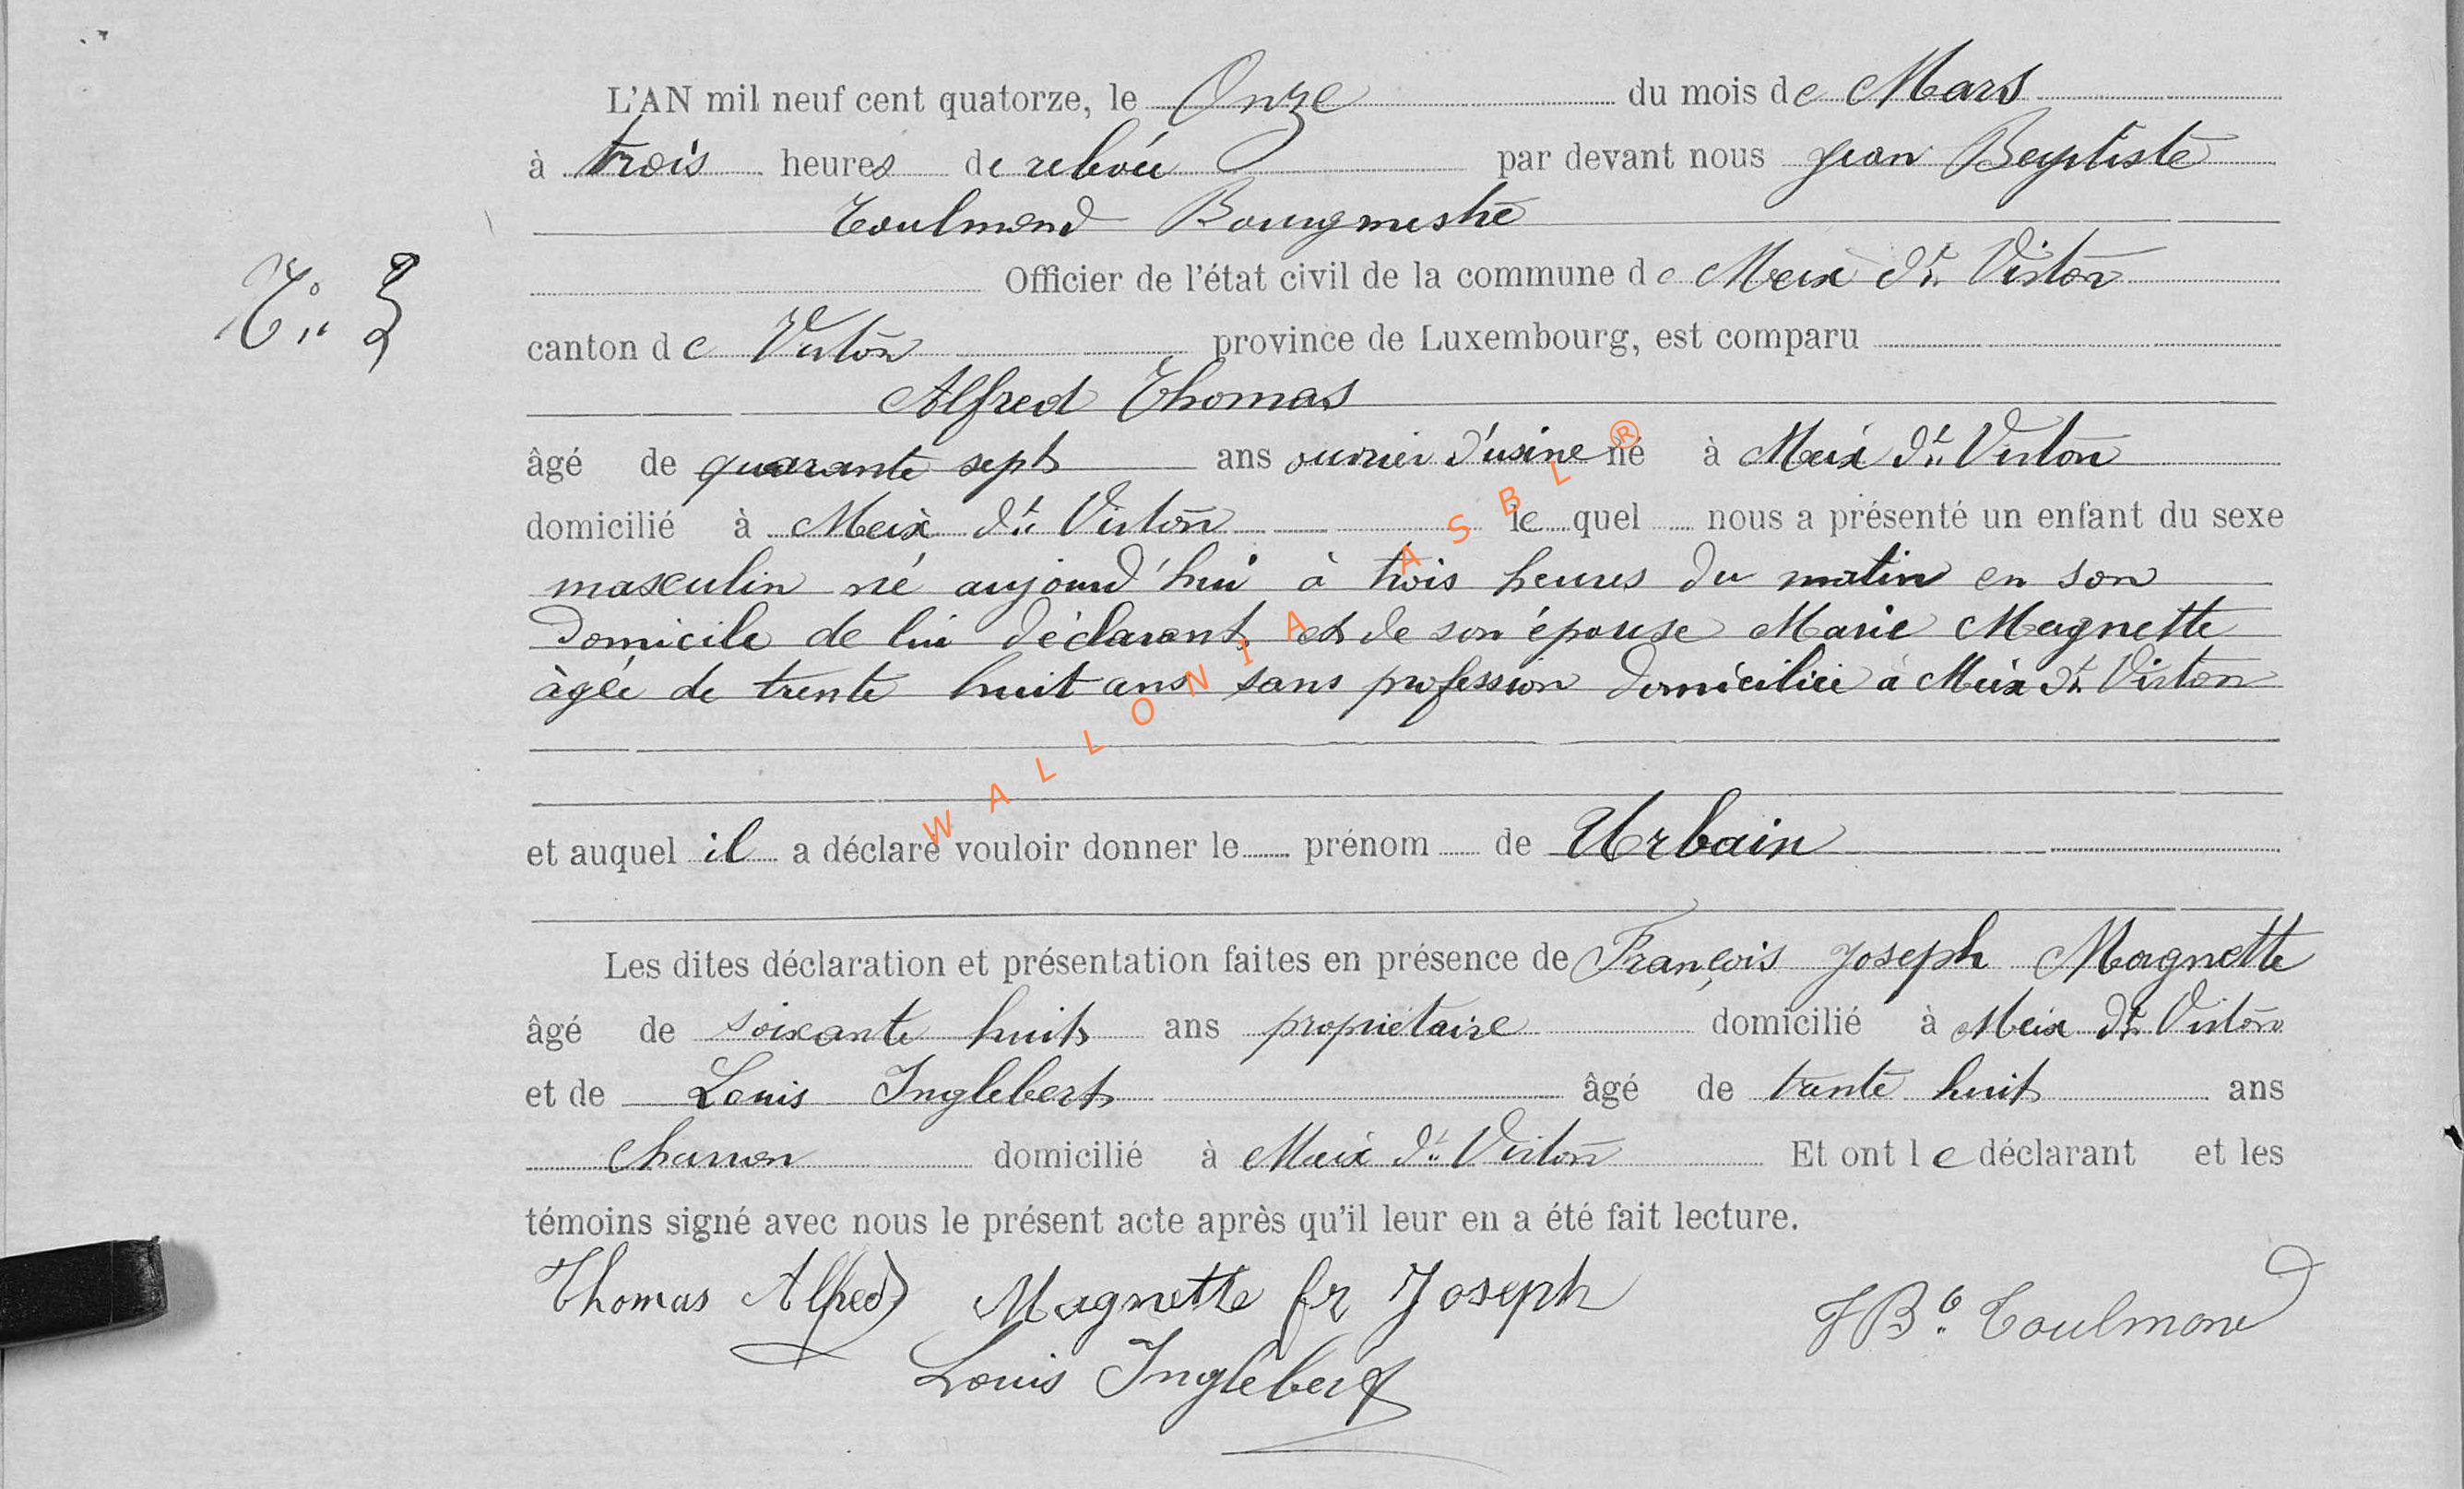 L'AN mil neuf cent quatorze, le Onze du mois de Mars
à trois heures de relevée par devant nous Jean Baptiste
Toulmond Bourgmestre
Officier de l'état civil de la commune de Meix dt Virton
N° 3
canton de Virton province de Luxembourg, est comparu
Alfred Thomas
âgé de quarante sept ans ouvrier d'usine né à Meix dt Virton
domicilié à Meix dt Virton le quel nous a présenté un enfant du sexe
masculin né aujourd'hui à trois heures du matin en son
domicile de lui déclarant et de son épouse Marie Magnette
âgée de trente huit ans sans profession domiciliée à Meix dt Virton
WALLONIA ASBL ®
et auquel il a déclaré vouloir donner le prénom de Urbain
Les dites déclaration et présentation faites en présence de François Joseph Magnette
âgé de soixante huit ans propriétaire domicilié à Meix dt Virton
et de Louis Inglebert âgé de trente huit ans
charron domicilié à Meix dt Virton Et ont le déclarant et les
témoins signé avec nous le présent acte après qu'il leur en a été fait lecture.
Thomas Alfred Magnette fr Joseph JBte Toulmond
Louis Inglebert